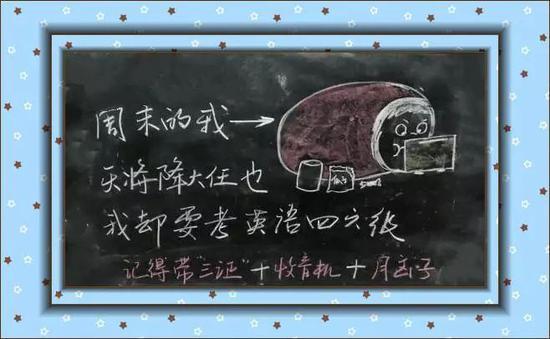 周末的我→
天将降大任也
我却要考英语四六级
记得带"三证"+收音机+脑子